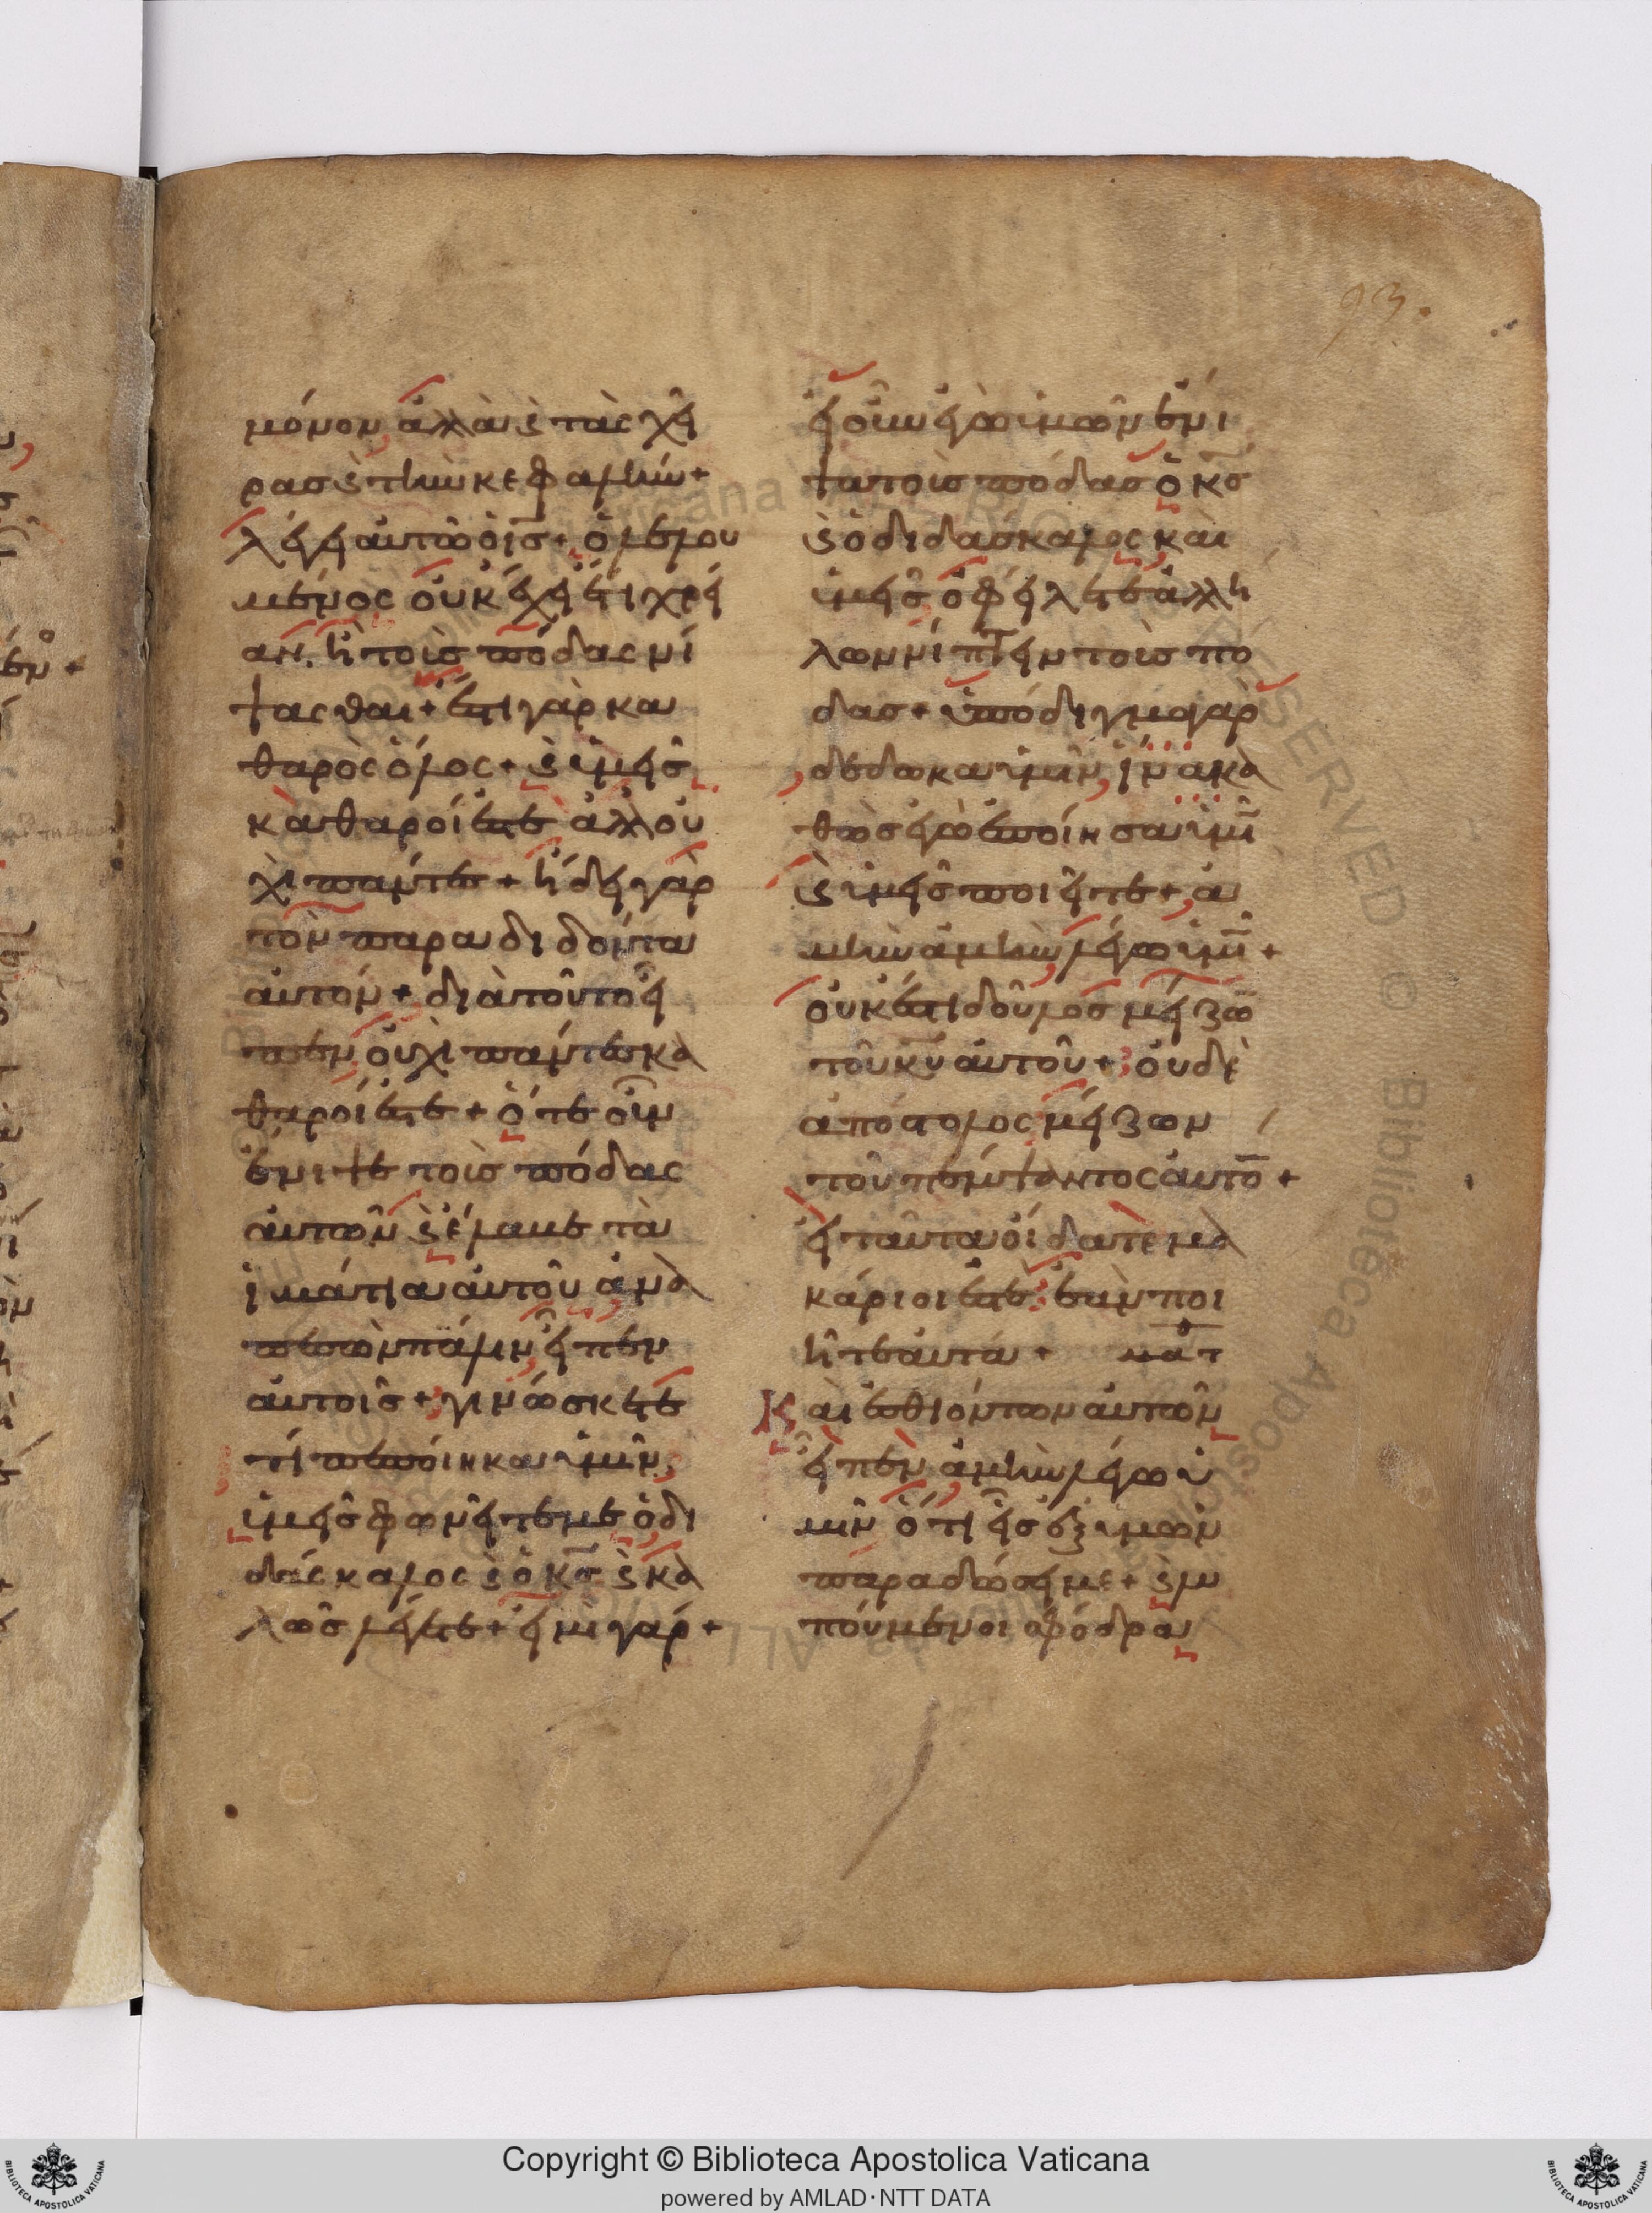 93.
μόνον ἀλλὰ ϗ τὰς χεῖ
ρασ ϗ τὴν κεφαλήν +
λέγει αὐτῶ ὁ ισ̅ + ὁ λελου
μένος οὐκ ἔχει ἔτι χρεί
αν. ἢ τοὺσ πόδας νί
ψασθαι + ἔστι γὰρ κα
θαρὸς ὅλος + ϗ ὑμεῖσ
καθαροί ἐστε ἀλλ οὐ
χὶ πάντεσ + ἤδει γὰρ
τὸν παραδιδόντα
αὐτόν + διὰ τοῦτο εἶ
πεν οὐχὶ πάντεσ κα
θαροί ἐστε + ὅτε οὖν
ἔνιψε τοὺσ πόδας
αὐτῶν ϗ ἔλαβε τὰ
ἱμάτια αὐτοῦ ἀνα
πεσὼν πάλιν εἶπεν
αὐτοῖσ + γινώσκετε
τί πεποίηκα ὑμῖν
ὑμεῖσ φωνεῖτέ με ὁ δι
δάσκαλος ϗ ὁ κσ̅ ϗ κα
λῶσ λέγετε + εἰμὶ γάρ +
εἰ οὖν ἐγὼ ὑμῶν ἔνι
ψα τοὺσ πόδασ ὁ κσ̅
ϗ ὁ διδάσκαλος καὶ
ὑμεῖσ ὀφείλετε ἀλλή
λων νίπτειν τοὺσ πό
δασ + ὑπόδιγμα γὰρ
δέδωκα ὑμῖν ἵνα κα
θὼσ ἐγὼ ἐποίησα ὑμῖ̅
ϗ ὑμεῖσ ποιεῖτε + ἀ
μὴν ἀμὴν λέγω ὑμῖ̅ +
οὐκ ἔστι δοῦλοσ μείζω̅
τοῦ κυ̅ αὐτοῦ + οὐδὲ
ἀπόστολος μείζων
τοῦ πέμψαντος αὐτό̅ +
εἰ ταῦτα οἴδατε μα
κάριοί ἐστε ἐὰν ποι
ῆτε αὐτά + ματ
Καὶ ἐσθιόντων αὐτῶν
εἶπεν ἀμὴν λέγω ὑ
μῖν ὅτι εἷσ ἐξ ὑμῶν
παραδώσει με + ϗ λυ
πούμενοι σφόδρα
Copyright © Biblioteca Apostolica Vaticana
powered by AMLAD·NTT DATA